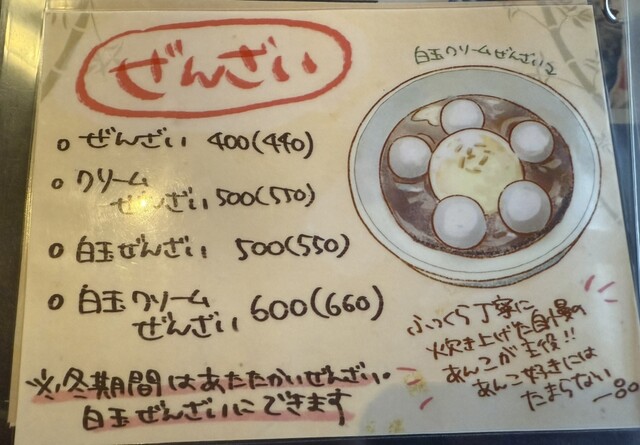 ぜんざい
白玉クリームぜんざい
○ ぜんざい 400(440)
○ クリーム
ぜんざい 500(550)
○ 白玉ぜんざい 500(550)
○ 白玉クリーム
ぜんざい 600(660)
※冬期間はあたたかいぜんざい・
白玉ぜんざいにできます
ふっくら丁寧に
炊き上げた自慢の
あんこが主役!!
あんこ好きには
たまらない